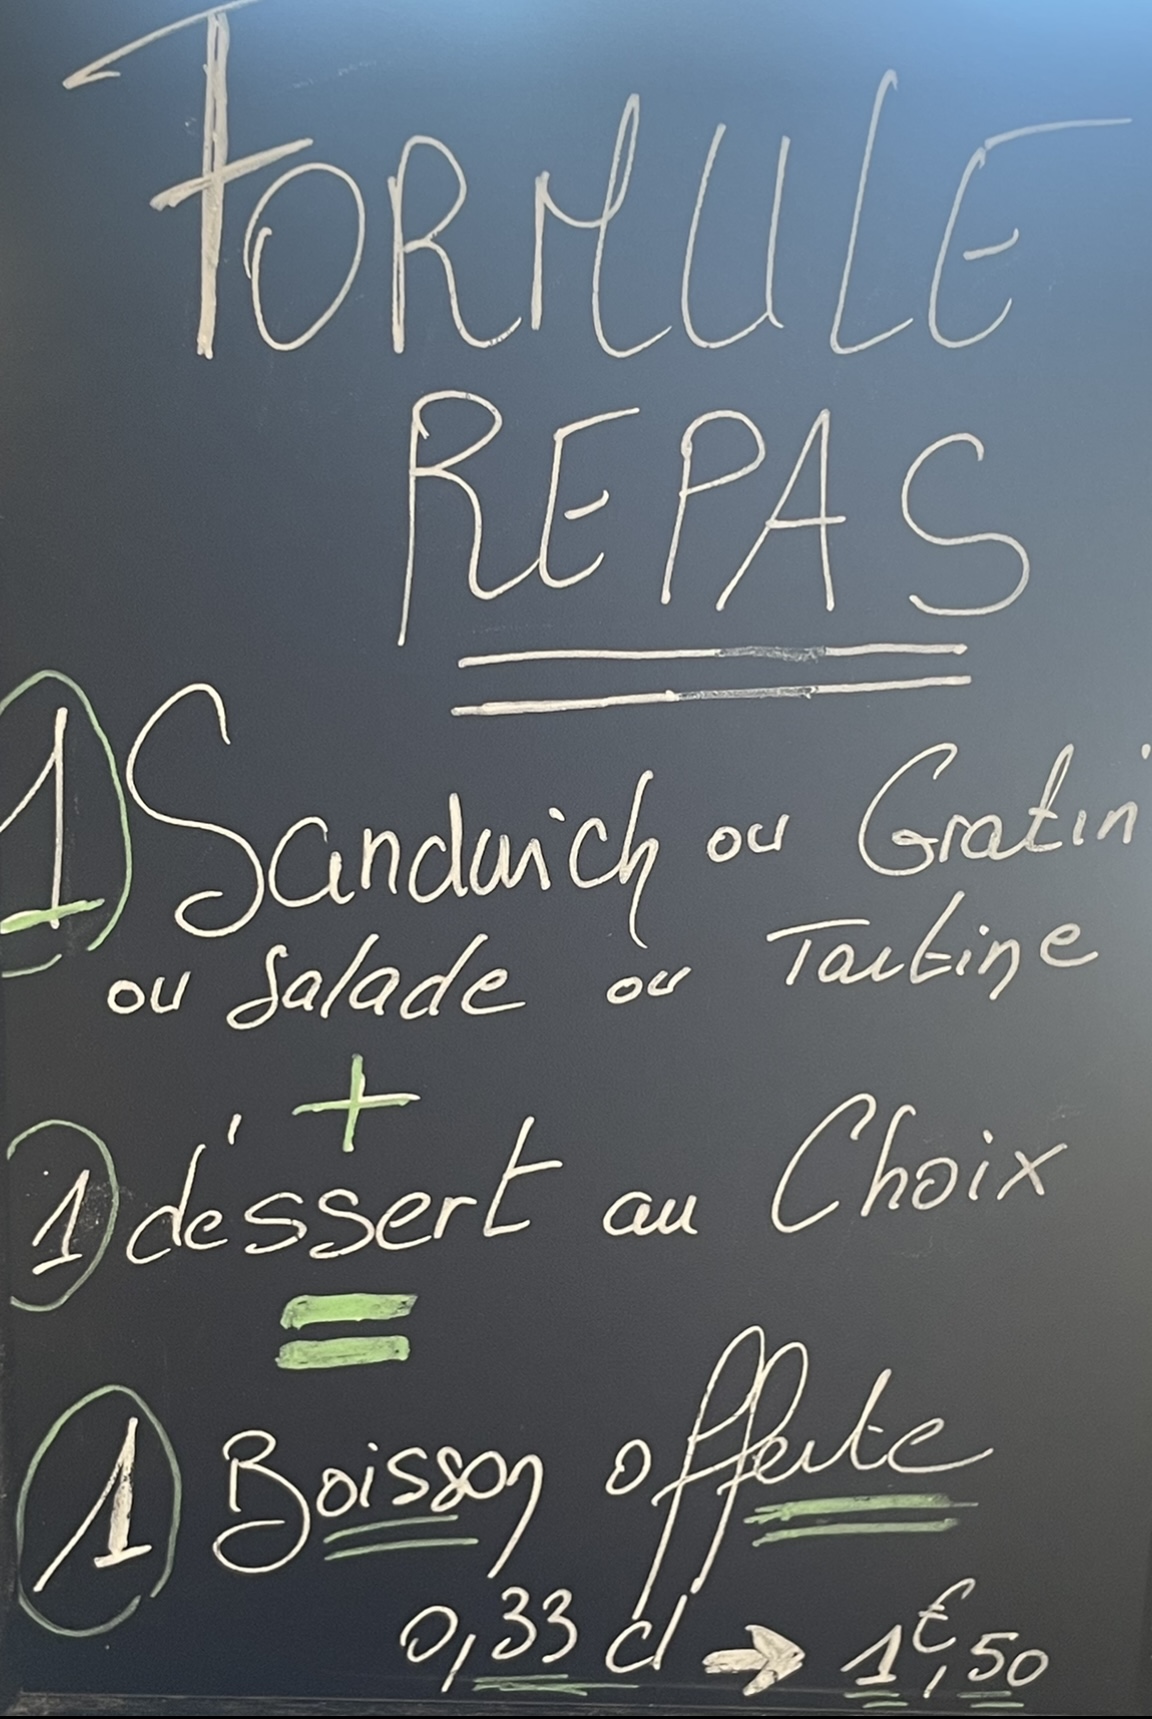 FORMULE
REPAS
1 Sandwich ou Gratin
ou Salade ou Tartine
+
1 déssert au Choix
=
1 Boisson offerte
0,33 cl → 1€,50